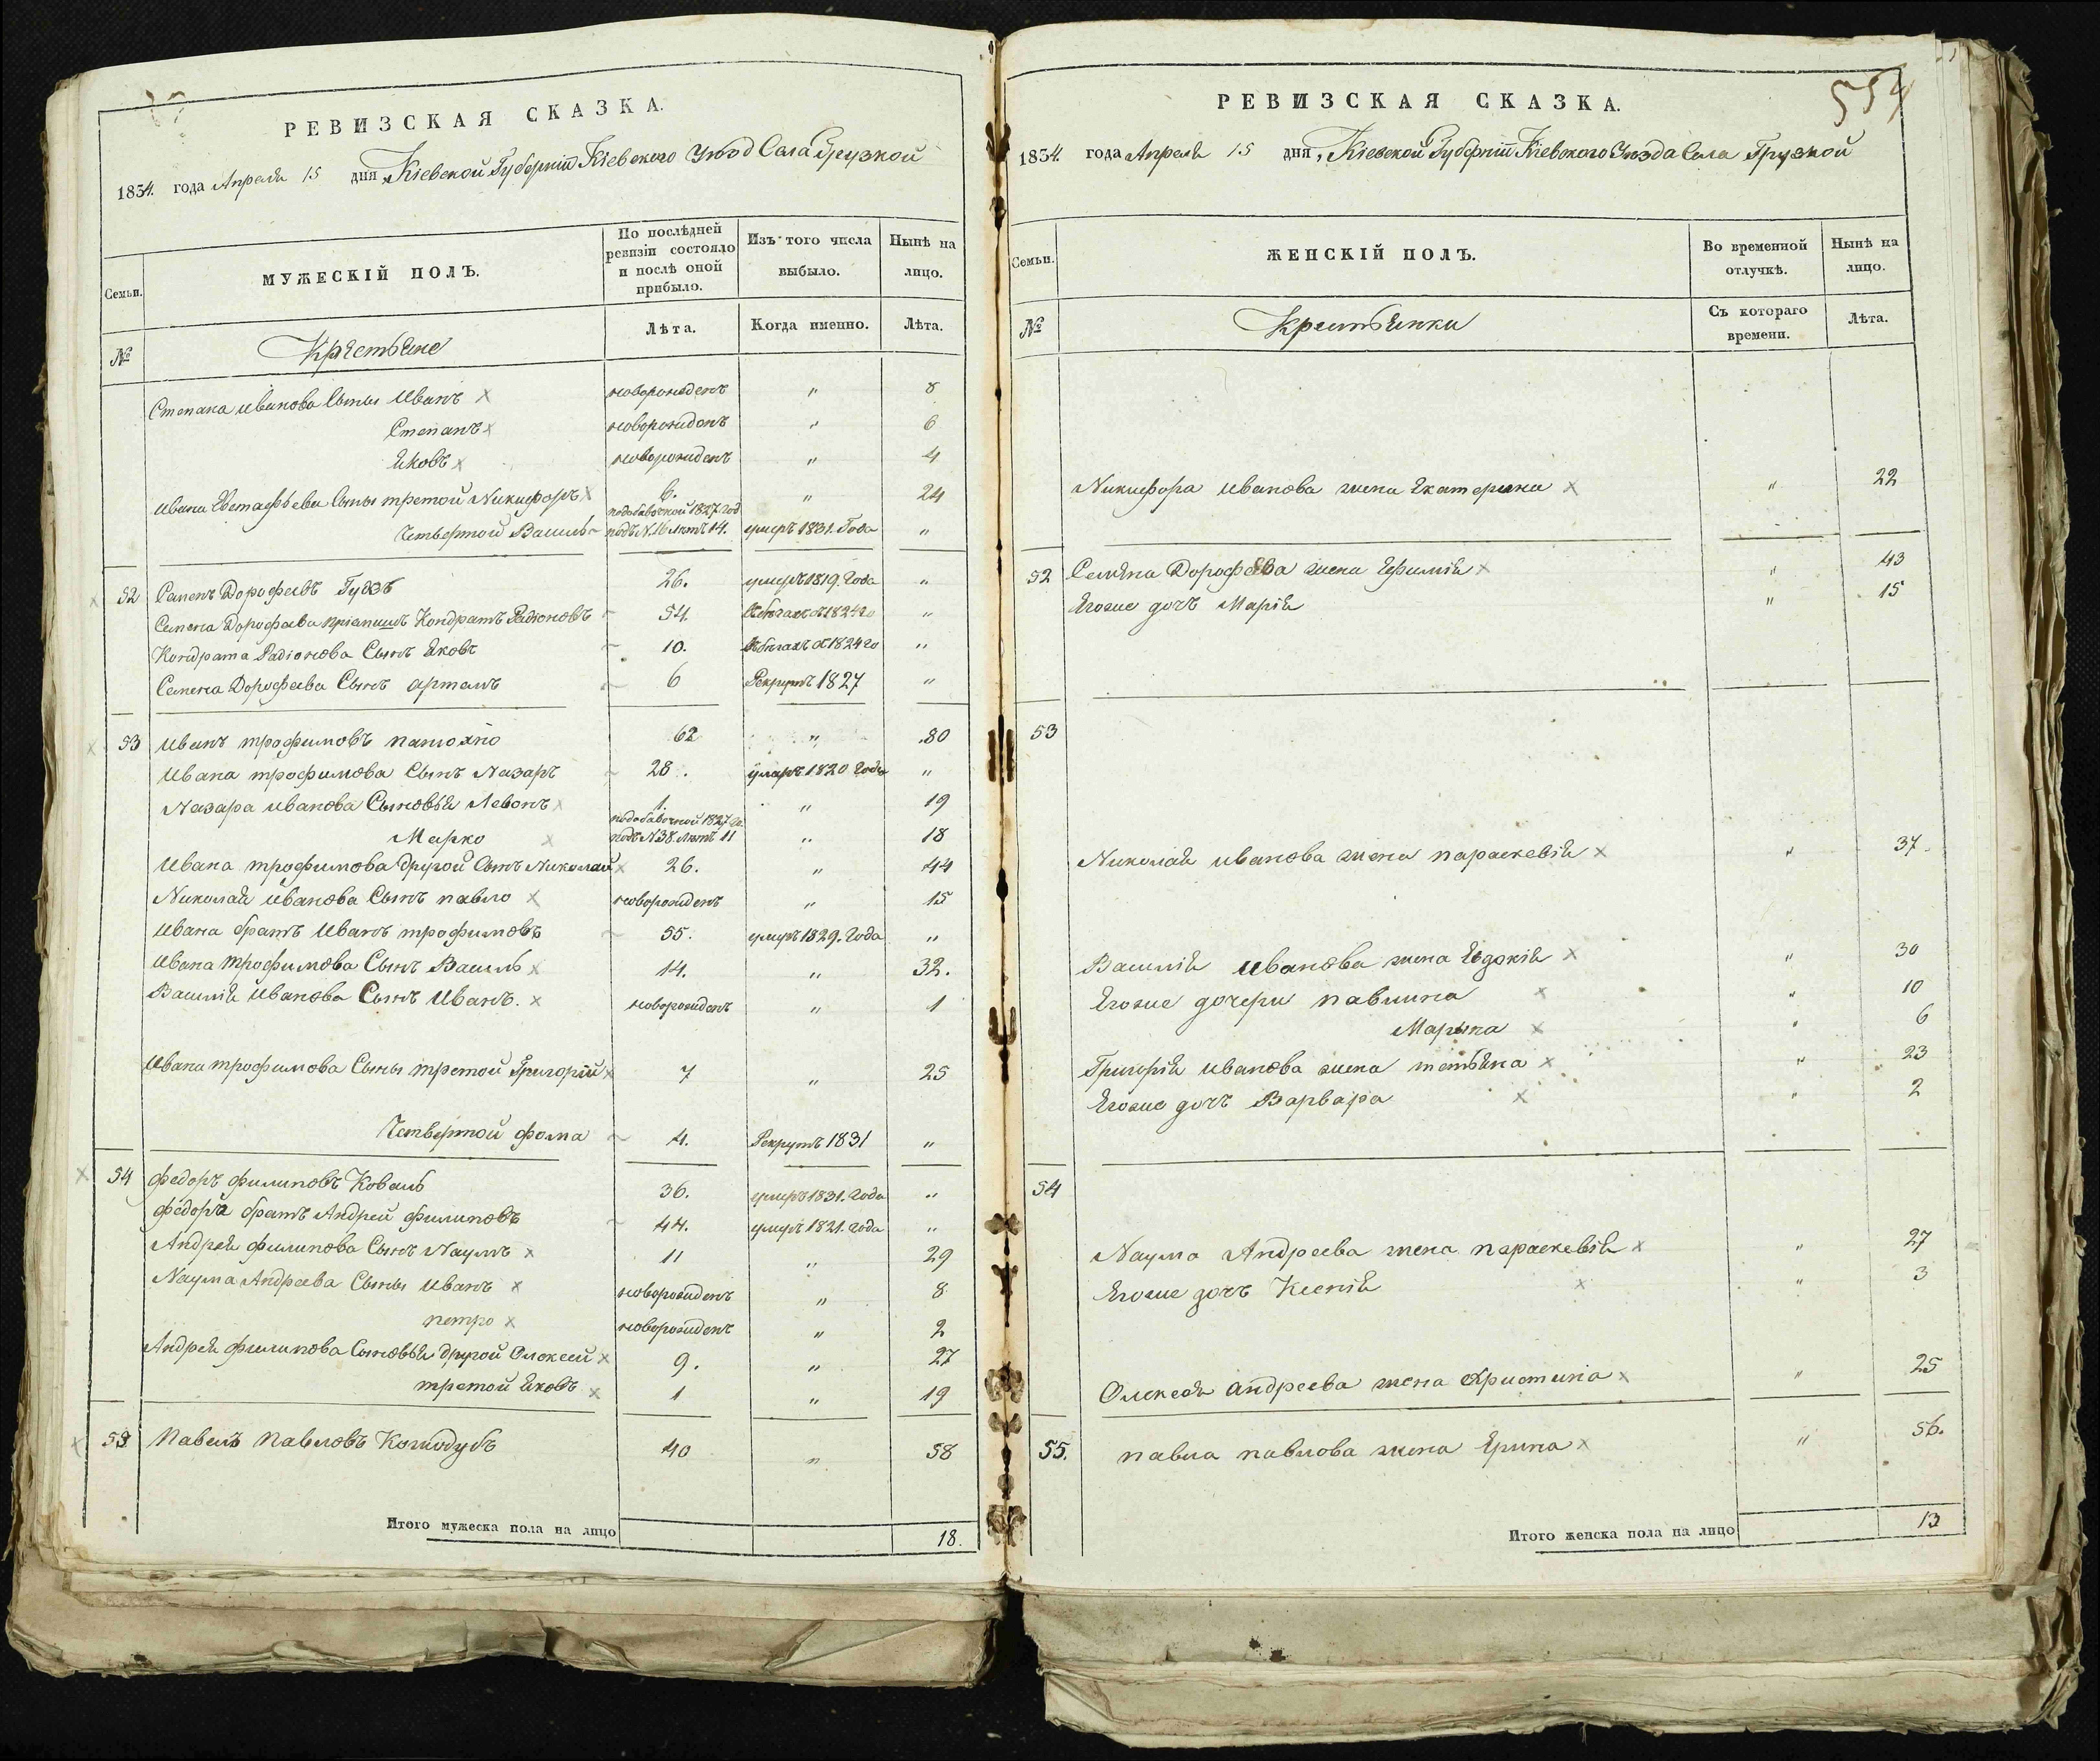 РЕВИЗСКАЯ СКАЗКА.
1834. года Апреля 15 дня, Кіевской Губерніи Кіевского Уезд Села Грузкой
Семьи.
МУЖЕСКІЙ ПОЛЪ.
По послѣдней ревизіи состояло и послѣ оной прибыло.
Изъ того числа выбыло.
Нынѣ на лицо.
№
Крестьяне
Лѣта.
Когда именно.
Лѣта.
Степана иванова Сыны иванъ новорожденъ " 8
Степанъ новорожденъ " 6
Яковъ новорожденъ " 4
ивана Евстафьева Сыны третой Никифоръ 6. " 24
Четвертой Василь подобавочной 1827 год подъ N. 16 летъ 14. умеръ 1831. Года "
52 Семенъ Дорофеевъ 26. умеръ 1819. Года "
Семена Дорофеева Кондратъ Радіоновъ 54. 1824 го "
Кондрата Радіонова Сынъ Яковъ 10. 1824 го "
Семена Дорофеева Сынъ артемъ 6 Рекрутъ 1827 "
53 иванъ трофимовъ 62 " 80
ивана трофимова Сынъ Назаръ 28. умеръ 1820 Года "
Назара иванова Сыновья Левонъ 1. " 19
Марко подобавочной 1827 го. подъ N 38 летъ 11 " 18
ивана трофимова другой Сынъ Николай 26. " 44
Николая иванова Сынъ павло новорожденъ " 15
ивана братъ иванъ трофимовъ 55. умеръ 1829. Года "
ивана трофимова Сынъ Василь 14. " 32.
Василія иванова Сынъ иванъ. новорожденъ " 1
ивана трофимова Сыны третой Григорій 7 " 25
Четвертой фома 4. Рекрутъ 1831 "
54 федоръ филиповъ Коваль 36. умеръ 1831. Года "
федора братъ Андрей филиповъ 44. умеръ 1821. года "
Андрея филипова Сынъ Наумъ 11 " 29
Наума Андреева Сыны иванъ новорожденъ " 8
петро новорожденъ " 2
Андрея филипова Сыновья другой Олексей 9. " 27
третой Яковъ 1 " 19
55 павелъ павловъ 40 " 58
Итого мужеска пола на лицо 18.
554
РЕВИЗСКАЯ СКАЗКА.
1834. года Апреля 15 дня, Кіевской Губерніи Кіевского Уезда Села Грузкой
Семьи.
ЖЕНСКІЙ ПОЛЪ.
Во временной отлучкѣ.
Нынѣ на лицо.
№
Крестьянки
Съ котораго времени.
Лѣта.
Никифора иванова жена Екатерина " 22
52 Семена Дорофеева жена Ефимія " 43
Егоже дочъ Марія " 15
53
Николая иванова жена параскевія " 37
Василія иванова жена Евдокія " 30
Егоже дочери павлина " 10
Марына " 6
Григорія иванова жена татьяна " 23
Егоже дочъ Варвара " 2
54
Наума Андреева жена параскевія " 27
Егоже дочъ Ксенія " 3
Олексея андреева жена христина " 25
55. павла павлова жена Ярина " 56.
Итого женска пола на лицо 13